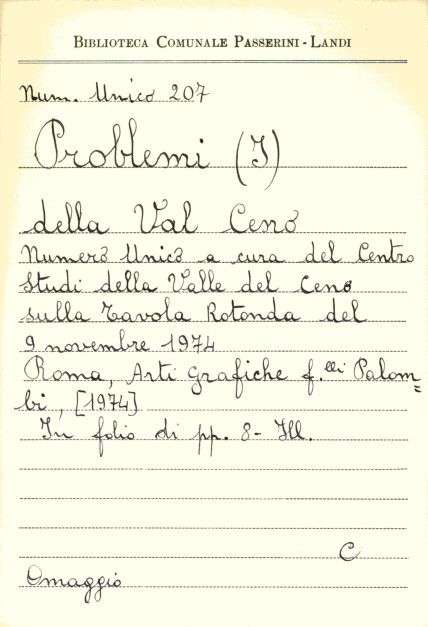 BIBLIOTECA COMUNALE PASSERINI - LANDI
Num. Unico 207
Problemi (I)
della Val Ceno
Numero Unico a cura del Centro
Studi della Valle del Ceno
sulla Tavola Rotonda del
9 novembre 1974
Roma, Arti Grafiche f.lli Palom=
bi, [1974]
In folio di pp. 8 - Ill.
C
Omaggio